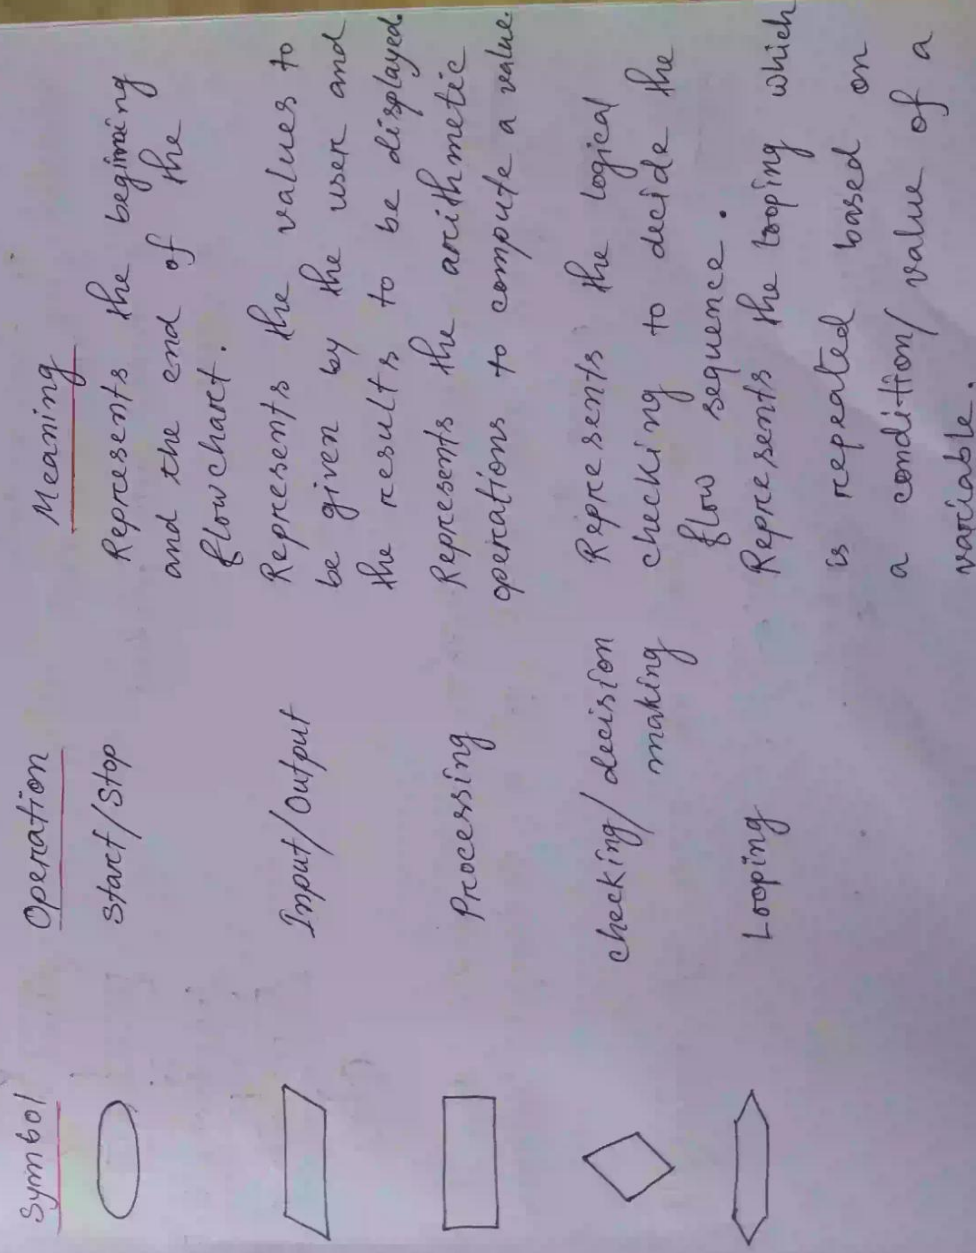 Symbol Operation Meaning
Start/Stop Represents the begining
and the end of the
flowchart.
Input/Output Represents the values to
be given by the user and
the results to be displayed.
Processing Represents the arithmetic
operations to compute a value.
checking/decision Represents the logical
making checking to decide the
flow sequence.
Looping Represents the looping which
is repeated based on
a condition/value of a
variable.